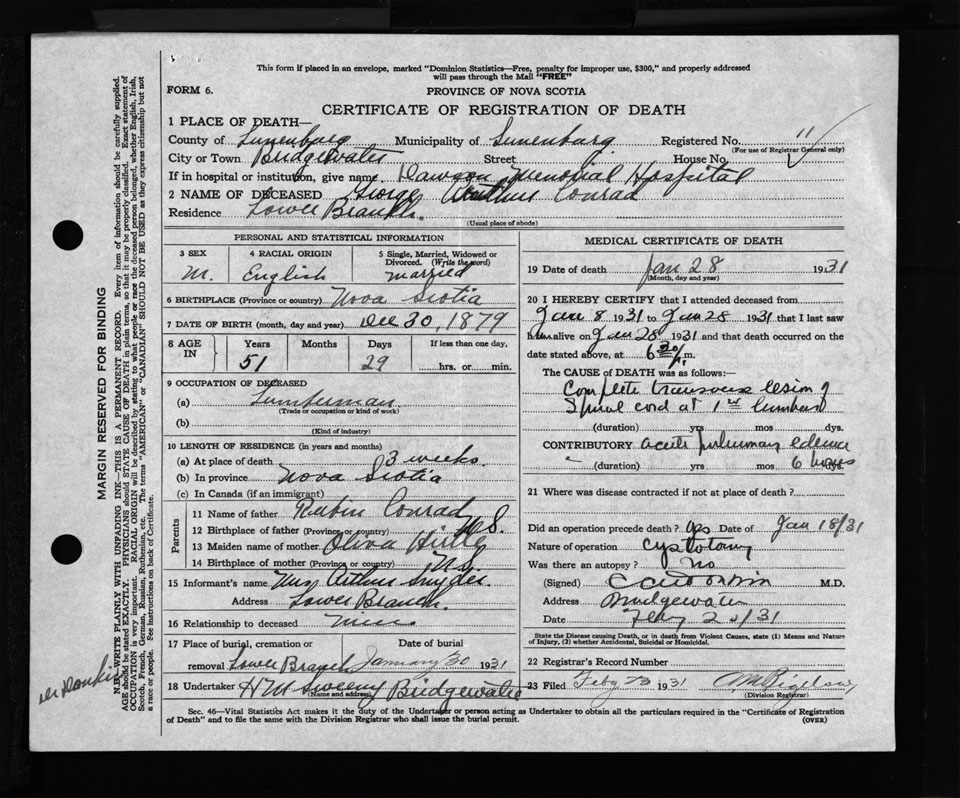 This form if placed in an envelope, marked "Dominion Statistics—Free, penalty for improper use, $300," and properly addressed
will pass through the Mail "FREE"
FORM 6.
PROVINCE OF NOVA SCOTIA
CERTIFICATE OF REGISTRATION OF DEATH
1 PLACE OF DEATH—
County of Lunenburg Municipality of Lunenburg Registered No. 11
(For use of Registrar General only)
City or Town Bridgewater Street House No.
If in hospital or institution, give name Dawson Memorial Hospital
2 NAME OF DECEASED George Arthur Conrad
Residence Lower Branch.
(Usual place of abode)
PERSONAL AND STATISTICAL INFORMATION
3 SEX 4 RACIAL ORIGIN 5 Single, Married, Widowed or
Divorced. (Write the word)
M. English married
6 BIRTHPLACE (Province or country) Nova Scotia
7 DATE OF BIRTH (month, day and year) Dec 30, 1879
8 AGE IN Years Months Days If less than one day,
51 29 hrs. or min.
9 OCCUPATION OF DECEASED
(a) Lumberman
(Trade or occupation or kind of work)
(b)
(Kind of industry)
10 LENGTH OF RESIDENCE (in years and months)
(a) At place of death 3 weeks.
(b) In province Nova Scotia
(c) In Canada (if an immigrant)
Parents
11 Name of father Reubin Conrad
12 Birthplace of father (Province or country) N.S.
13 Maiden name of mother Oliva
14 Birthplace of mother (Province or country) N.S.
15 Informant's name Mrs Arthur Snyder
Address Lower Branch.
16 Relationship to deceased
17 Place of burial, cremation or Date of burial
removal Lower Branch January 30 1931
18 Undertaker H M Sweeny Bridgewater
(Name and address)
MEDICAL CERTIFICATE OF DEATH
19 Date of death Jan 28 1931
(Month, day and year)
20 I HEREBY CERTIFY that I attended deceased from
Jan 8 1931 to Jan 28 1931 that I last saw
him alive on Jan 28 1931 and that death occurred on the
date stated above, at 6 20 m.
The CAUSE OF DEATH was as follows:—
Complete transverse lesion of
Spinal cord at 1st lumbar
(duration) yrs mos dys.
CONTRIBUTORY acute pulmonary edema
(duration) yrs mos 6 hours
21 Where was disease contracted if not at place of death?
Did an operation precede death? yes Date of Jan 18/31
Nature of operation cystotomy
Was there an autopsy? No
(Signed) M.D.
Address Bridgewater
Date Feby 20/31
State the Disease causing Death, or in death from Violent Causes, state (1) Means and Nature
of Injury, (2) whether Accidental, Suicidal or Homicidal.
22 Registrar's Record Number
23 Filed Feby 23 1931
(Division Registrar)
Sec. 46—Vital Statistics Act makes it the duty of the Undertaker or person acting as Undertaker to obtain all the particulars required in the "Certificate of Registration
of Death" and to file the same with the Division Registrar who shall issue the burial permit.
(OVER)
MARGIN RESERVED FOR BINDING
N.B.—WRITE PLAINLY WITH UNFADING INK—THIS IS A PERMANENT RECORD. Every item of information should be carefully supplied.
AGE should be stated EXACTLY. PHYSICIANS should STATE CAUSE OF DEATH in plain terms, so that it may be properly classified. Exact statement of
OCCUPATION is very important. RACIAL ORIGIN will be described by stating to what people or race the deceased person belonged, whether English, Irish,
Scotch, French, German, Russian, Ruthenian, etc. The terms "AMERICAN" or "CANADIAN" SHOULD NOT BE USED as they express citizenship but not
a race or people. See instructions on back of Certificate.